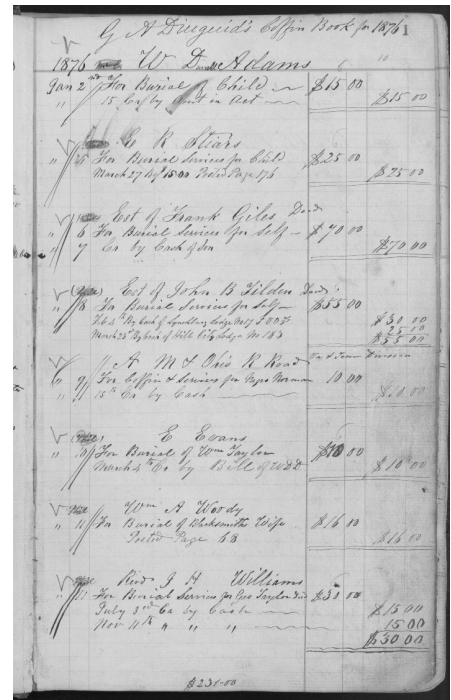 G A Diuguid's Coffin Book for 1876 1
1876 W D Adams
Jan 2nd For Burial of Child $15 00
" 15 Cr by Amt in Act $15 00
C R Stiars
" 5 For Burial Services for Child $25 00
March 27 By 15.00 Posted Page 176 $25 00
Est of Frank Giles Decd
" 6 For Burial Services for Self $70 00
" 7 Cr by Cash of Son $70 00
Est of John B Tilden Decd
" 8 For Burial Services for Self $55 00
Feb 4th By Cash of Lynchburg Lodge No 17 I O O F $30 00
March 25th By of Hill City Lodge No 183 25 00
$55 00
A M & Ohio R Road Va & Tenn Division
" 9 For Coffin & Services for Negro Norman 10 00
" 15th Cr by Cash $10 00
E Evans
" 10 For Burial of Wm Taylor $10 00
March 4th Cr by Bill of W D D $10 00
Wm A Woody
" 11 For Burial of Blacksmiths Wife $16 00
Posted Page 68 $16 00
Revd J H Williams
" 11 For Burial Services for Geo Taylor Decd $30 00
July 3rd Cr by Cash $15 00
Nov 11th " " " 15 00
$30 00
$231.00